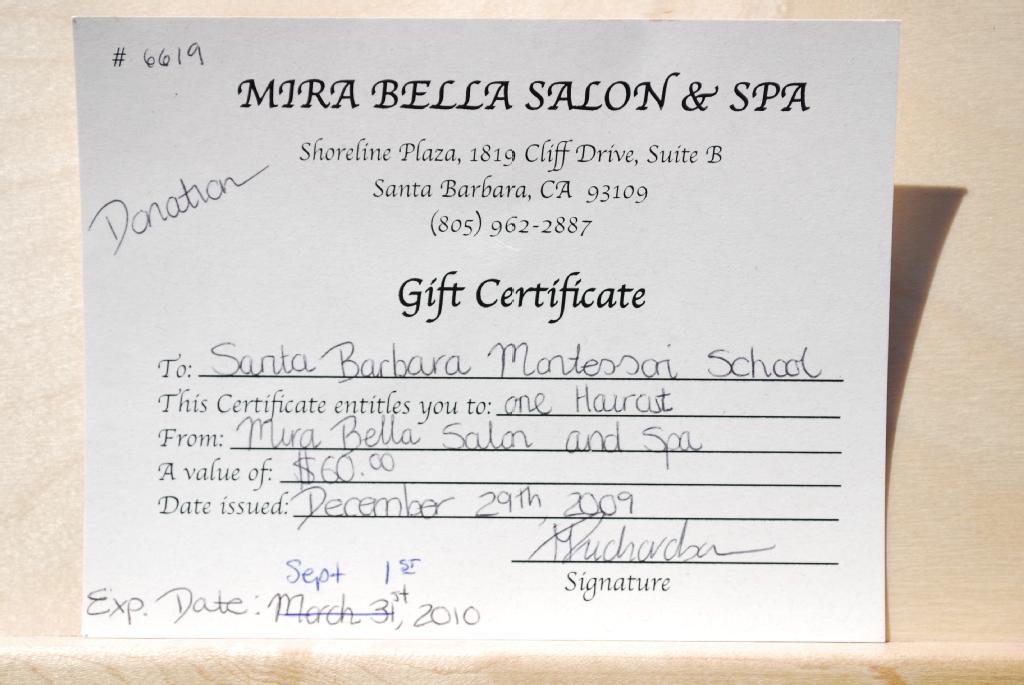 # 6619
MIRA BELLA SALON & SPA
Shoreline Plaza, 1819 Cliff Drive, Suite B
Santa Barbara, CA 93109
Donation
(805) 962-2887
Gift Certificate
To: Santa Barbara Montessori School
This Certificate entitles you to: one Haircut
From: Mira Bella Salon and Spa
A value of: $60.00
Date issued: December 29th, 2009
Signature
Sept 1st
Exp. Date: March 31st, 2010